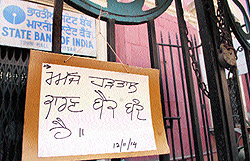 भारतीय स्टेट बैंक
ਭਾਰਤੀ ਸਟੇਟ ਬੈਂਕ
STATE BANK OF INDIA
ਹੜਤਾਲ
ਕਾਰਣ ਬੈਂਕ ਬੰਦ
ਹੈ॥
12/11/14